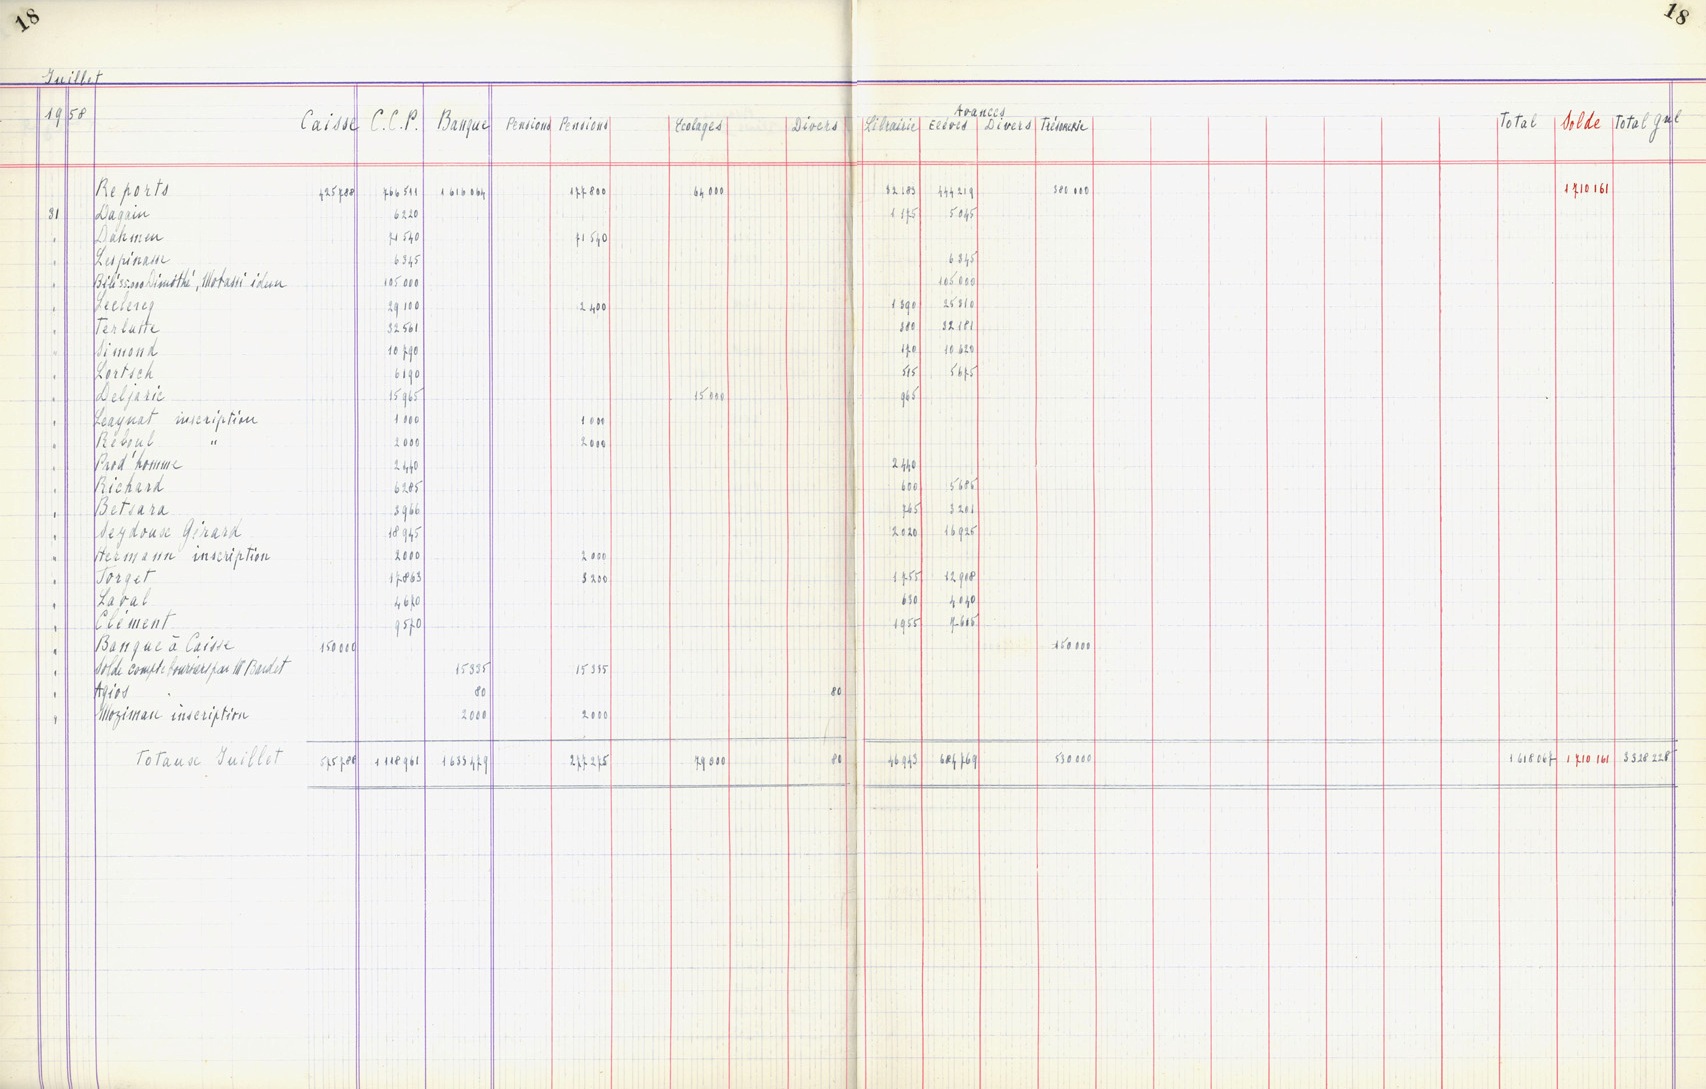 18
18
Juillet
1958 Caisse C.C.P. Banque Pensions Pensions Ecolages Divers Librairie Avances Elèves Divers Trésorerie Total Solde Total gnl
Reports 425788 766511 1616064 177800 64000 32183 444219 380000 1710161
31 Dagain 6220 1175 5045
" Dahmen 71540 71540
" Lespinasse 6345 6345
" Dimothé, Motassi idem 105000 105000
" Leclercq 29100 2400 1390 25310
" Terlutte 32561 380 32181
" Simond 10790 170 10620
" Lortsch 6190 515 5675
" Deljarie 15965 15000 965
" Leaynat inscription 1000 1000
" Reboul " 2000 2000
" Prod'homme 2440 2440
" Richard 6285 600 5685
" Betsara 3966 765 3201
" Seydoux Gérard 18945 2020 16925
" Hermann inscription 2000 2000
" Torget 17863 3200 1755 12908
" Laval 4670 630 4040
" Clément 9570 1955 7615
" Banque à Caisse 150000 150000
" Solde compte boursiers par Mr Baudet 15335 15335
" Agios 80 80
" Moziman inscription 2000 2000
Totaux Juillet 575788 1118961 1633479 277275 79000 80 46943 684769 530000 1618067 1710161 3328228